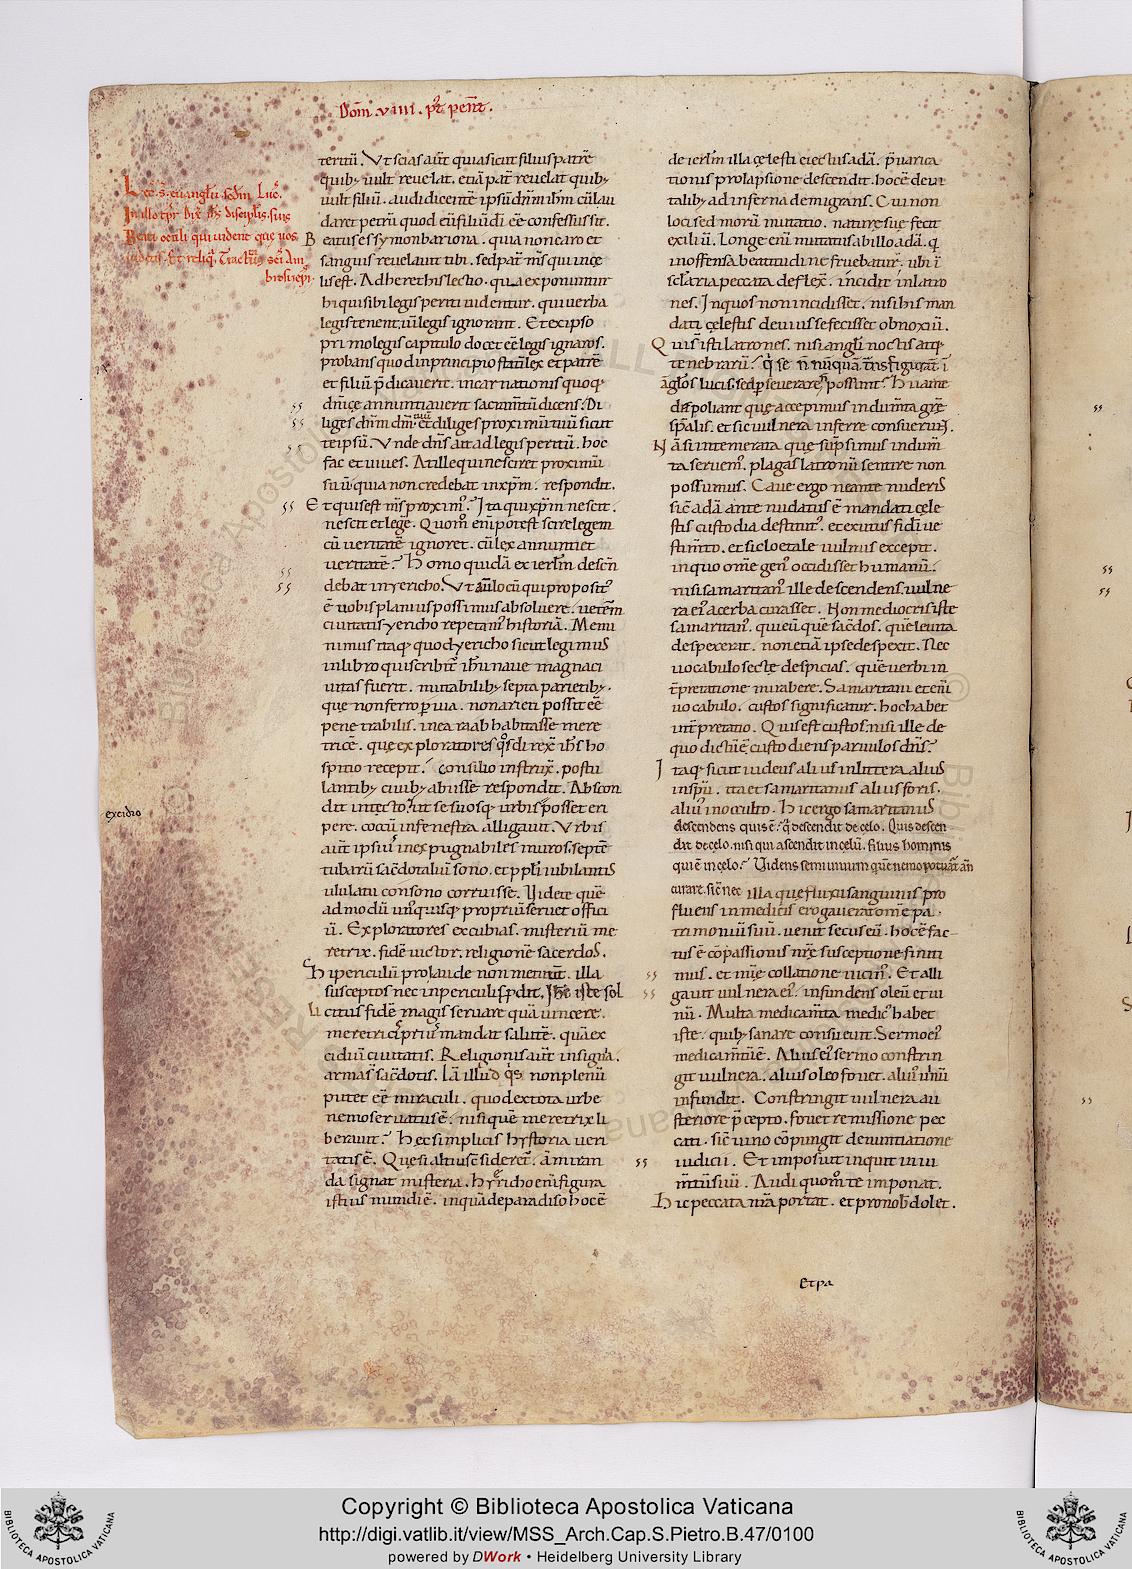 Dom̄. viiii. pt̄ pent̄.
Lec̄. s̄. euangl̄ii. sedm̄ Luc̄.
In illo tp̄r dix̄ ih̄s discipl̄is suis
Beati oculi qui uident que uos
uidetis. Et reliq̄. Tractus sc̄i Am
brosii ep̄i.
teriū. Vt scias aūt quia sicut filius patrē
quibꝫ uult reuelat. etiā pat̄ reuelat quibꝫ
uult filiū. audi dicentē ipsū dn̄m ih̄m cū lau
daret petrū quod eū filiū dī ēe confessus sit.
Beatus es symon bariona. quia non caro et
sanguis reuelauit tibi. sed pat̄ m̄s qui in cę
lis est. Adheret his lectio. qua exponuntur
hi qui sibi legis periti uidentur. qui uerba
legis tenent, uī legis ignorant. Et ex ipso
primo legis capitulo docet ēe legis ignaros.
probans quod in principio statim lex et patrē
et filiū p̄dicauerit. incarnationis quoqꝫ
dn̄icę annuntiauerit sacram̄tū dicens. Di
liges dn̄m dm̄ tuū. et diliges proximū tuū sicut
te ipsū. Vnde dn̄s ait ad legis peritū. hoc
fac et uiues. At ille qui nesciret proximū
suū. quia non credebat in xp̄m. respondit.
Et quis est m̄s proxim᷒? Ita qui xp̄m nescit.
nescit et legē. Quom̄ eni potest scire legem
cū ueritatē ignoret. cū lex annuntiet
ueritatē? Homo quidā ex ierl̄m descen̄
debat in yericho. Vt aūt locū qui proposit᷒
ē uobis planius possimus absoluere. ueterem
ciuitatis yericho repetam᷒ historiā. Memi
nimus itaqꝫ quod yericho sicut legimus
in libro qui scribit̄ ih̄u naue magna ci
uitas fuerit. mutabilibꝫ septa parietibꝫ.
que non ferro p̄uia. non arieti possit ēe
penetrabilis. in ea raab habitasse mere
tricē. que exploratores q̊s direx̄ ih̄s ho
spitio recepit. consilio instrux̄. postu
lantibꝫ ciuibꝫ abiisse respondit. Abscon
dit in tecto. ut se suosqꝫ urbis posset eri
excidio
pere. coccū in fenestra alligauit. Vrbis
aūt ipsius inexpugnabiles muros. septē
tubarū sac̄dotaliū sono. et ppl̄i iubilantis
ululatu consono corruisse. Videte quē
admodū un᷒quisqꝫ propriū seruet offici
ū. Exploratores excubias. misteriū me
retrix. fidē uictor. religionē sacerdos.
Hi periculū pro laude non metiunt̄. illa
susceptos nec in periculis p̄dit. Ih̄s iste sol
licitus fidē magis seruare quā uincere.
meretrici prius mandat salutē. quā ex
cidiū ciuitatis. Religionis aūt insignia.
arma s̄ sac̄dotis. Iā illud q̄s non plenū
putet ēe miraculi. quod ex tota urbe
nemo seruatus ē. nisi quē meretrix li
berauit? Hęc simplicis hystoria ueri
tatis ē. Que si altius c̄sideret̄. āmiran
da signat misteria. hyericho eni figura
istius mundi ē. in quā de paradiso hoc ē
de ierl̄m illa cęlesti eiectus adā. p̄uarica
tionis prolapsione descendit. hoc ē de ui
talibꝫ ad inferna demigrans. Cui non
loci sed morū mutatio. naturę suę fecit
exiliū. Longe enī mutatus ab illo adā. q̄
inoffensa beatitudine fruebatur. ubi ī
sclaria peccata deflex̄. incidit in latro
nes. In quos non incidisset. nisi his man
dati cęlestis deuius se fecisset obnoxiū.
Qui s̄ isti latrones. nisi angl̄i noctis atqꝫ
tenebrarū? q̄ se n̄ nūquā trans̄figurant ī
angl̄os lucis. sed p̄seuerare n̄ possunt? Hi ante
dispoliant que accepimus indum̄ta grē
sp̄alis. et sic uulnera inferre consuerūt.
Nā si intemerata que sūpsimus indum̄
ta seruem᷒. plagas latronū sentire non
possumus. Caue ergo ne ante nuderis
sic̄ adā ante nudatus ē mandati cęle
stis custodia destitut᷒. et exutus fidei ue
stim̄to. et sic loetale uulnus excepit.
in quo om̄e gen᷒ occidisset humanū.
nisi samaritan᷒ ille descendens. uulne
ra ei᷒ acerba curasset. Non mediocris iste
samaritan᷒. qui eū quē sac̄dos. quē leuita
despexerat. non etiā ipse despexit. Nec
uocabulo sectę despicias. quē uerbi in
t̄pretatione mirabere. Samaritani eteni
uocabulo. custos significatur. hoc habet
int̄pretatio. Quis est custos. nisi ille de
quo dictū ē. custodiens paruulos dn̄s?
Itaqꝫ sicut iudeus alius in littera. alius
in spū. ita et samaritanus alius foris.
alius in occulto. Hic ergo samaritanus
descendens quis ē? q̄ descendit de celo. Quis descen
dit de celo. nisi qui ascendit in celū. filius hominis
qui ē in celo? Videns semiuiuum quē nemo potuerat an̄
curare. sic̄ nec illa que fluxu sanguinis pro
fluens in medicis erogauerat om̄e pa
trimoniū suū. uenit secus eū. hoc ē fac
tus ē cōpassionis nr̄ę susceptione finiti
mus. et mīe collatione uicin᷒. Et alli
gauit uulnera ei᷒. infundens oleū et ui
nū. Multa medicam̄ta medic᷒ habet
iste. quibꝫ sanare consueuit. Sermo ei᷒
medicam̄tū ē. Alius ei᷒ sermo constrin
git uulnera. alius oleo fouet. alius uinū
infundit. Constringit uulnera au
steriore p̄cepto. fouet remissione pec
cati. sic̄ uino cōpungit denuntiatione
iudicii. Et imposuit inquit in iu
m̄tū suū. Audi quom̄ te imponat.
Hic peccata nr̄a portat. et pro nob̄ dolet.
Et pa
Copyright © Biblioteca Apostolica Vaticana
http://digi.vatlib.it/view/MSS_Arch.Cap.S.Pietro.B.47/0100
powered by DWork • Heidelberg University Library
BIBLIOTECA APOSTOLICA VATICANA
BIBLIOTECA APOSTOLICA VATICANA